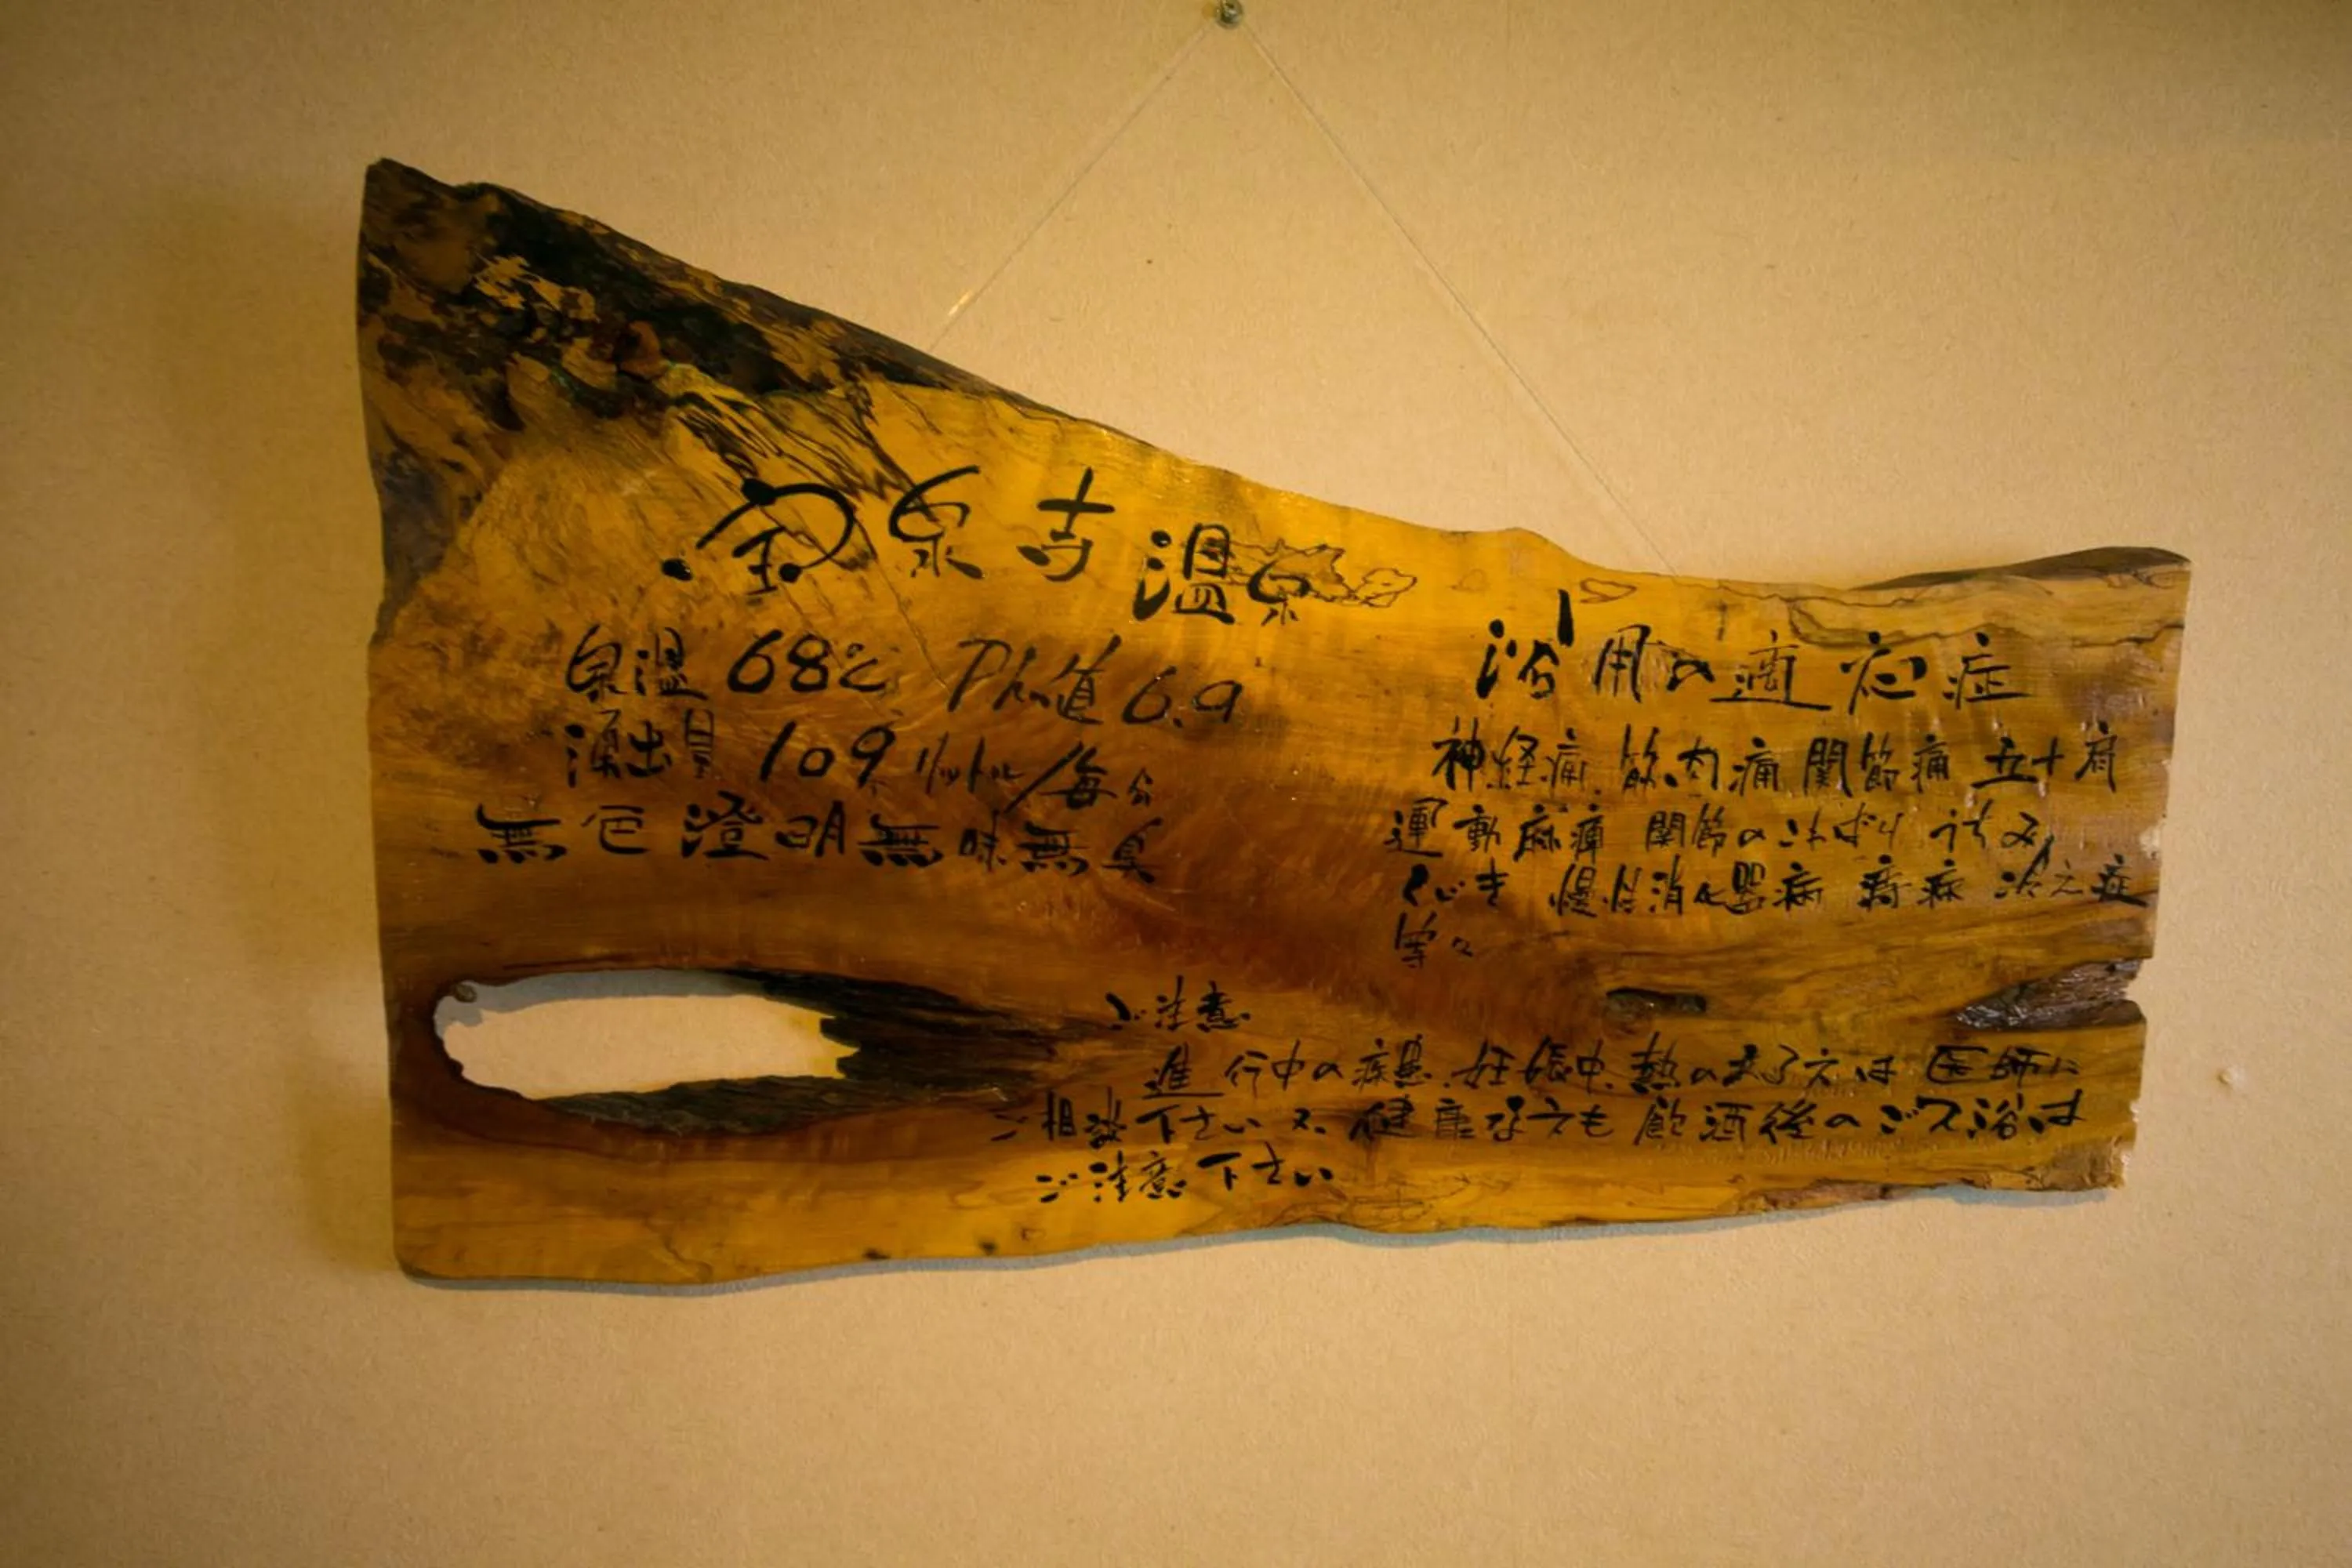 宝泉寺温泉
泉温 68℃ PH値 6.9
湧出量 109 リットル/毎分
無色澄明無味無臭
浴用の適応症
神経痛 筋肉痛 関節痛 五十肩
運動麻痺 関節のこわばり うちみ
くじき 慢性消化器病 痔疾 冷え症
等々
ご注意
進行中の疾患.妊娠中.熱のある方は 医師に
ご相談下さい 又.健康な方も 飲酒後のご入浴は
ご注意下さい